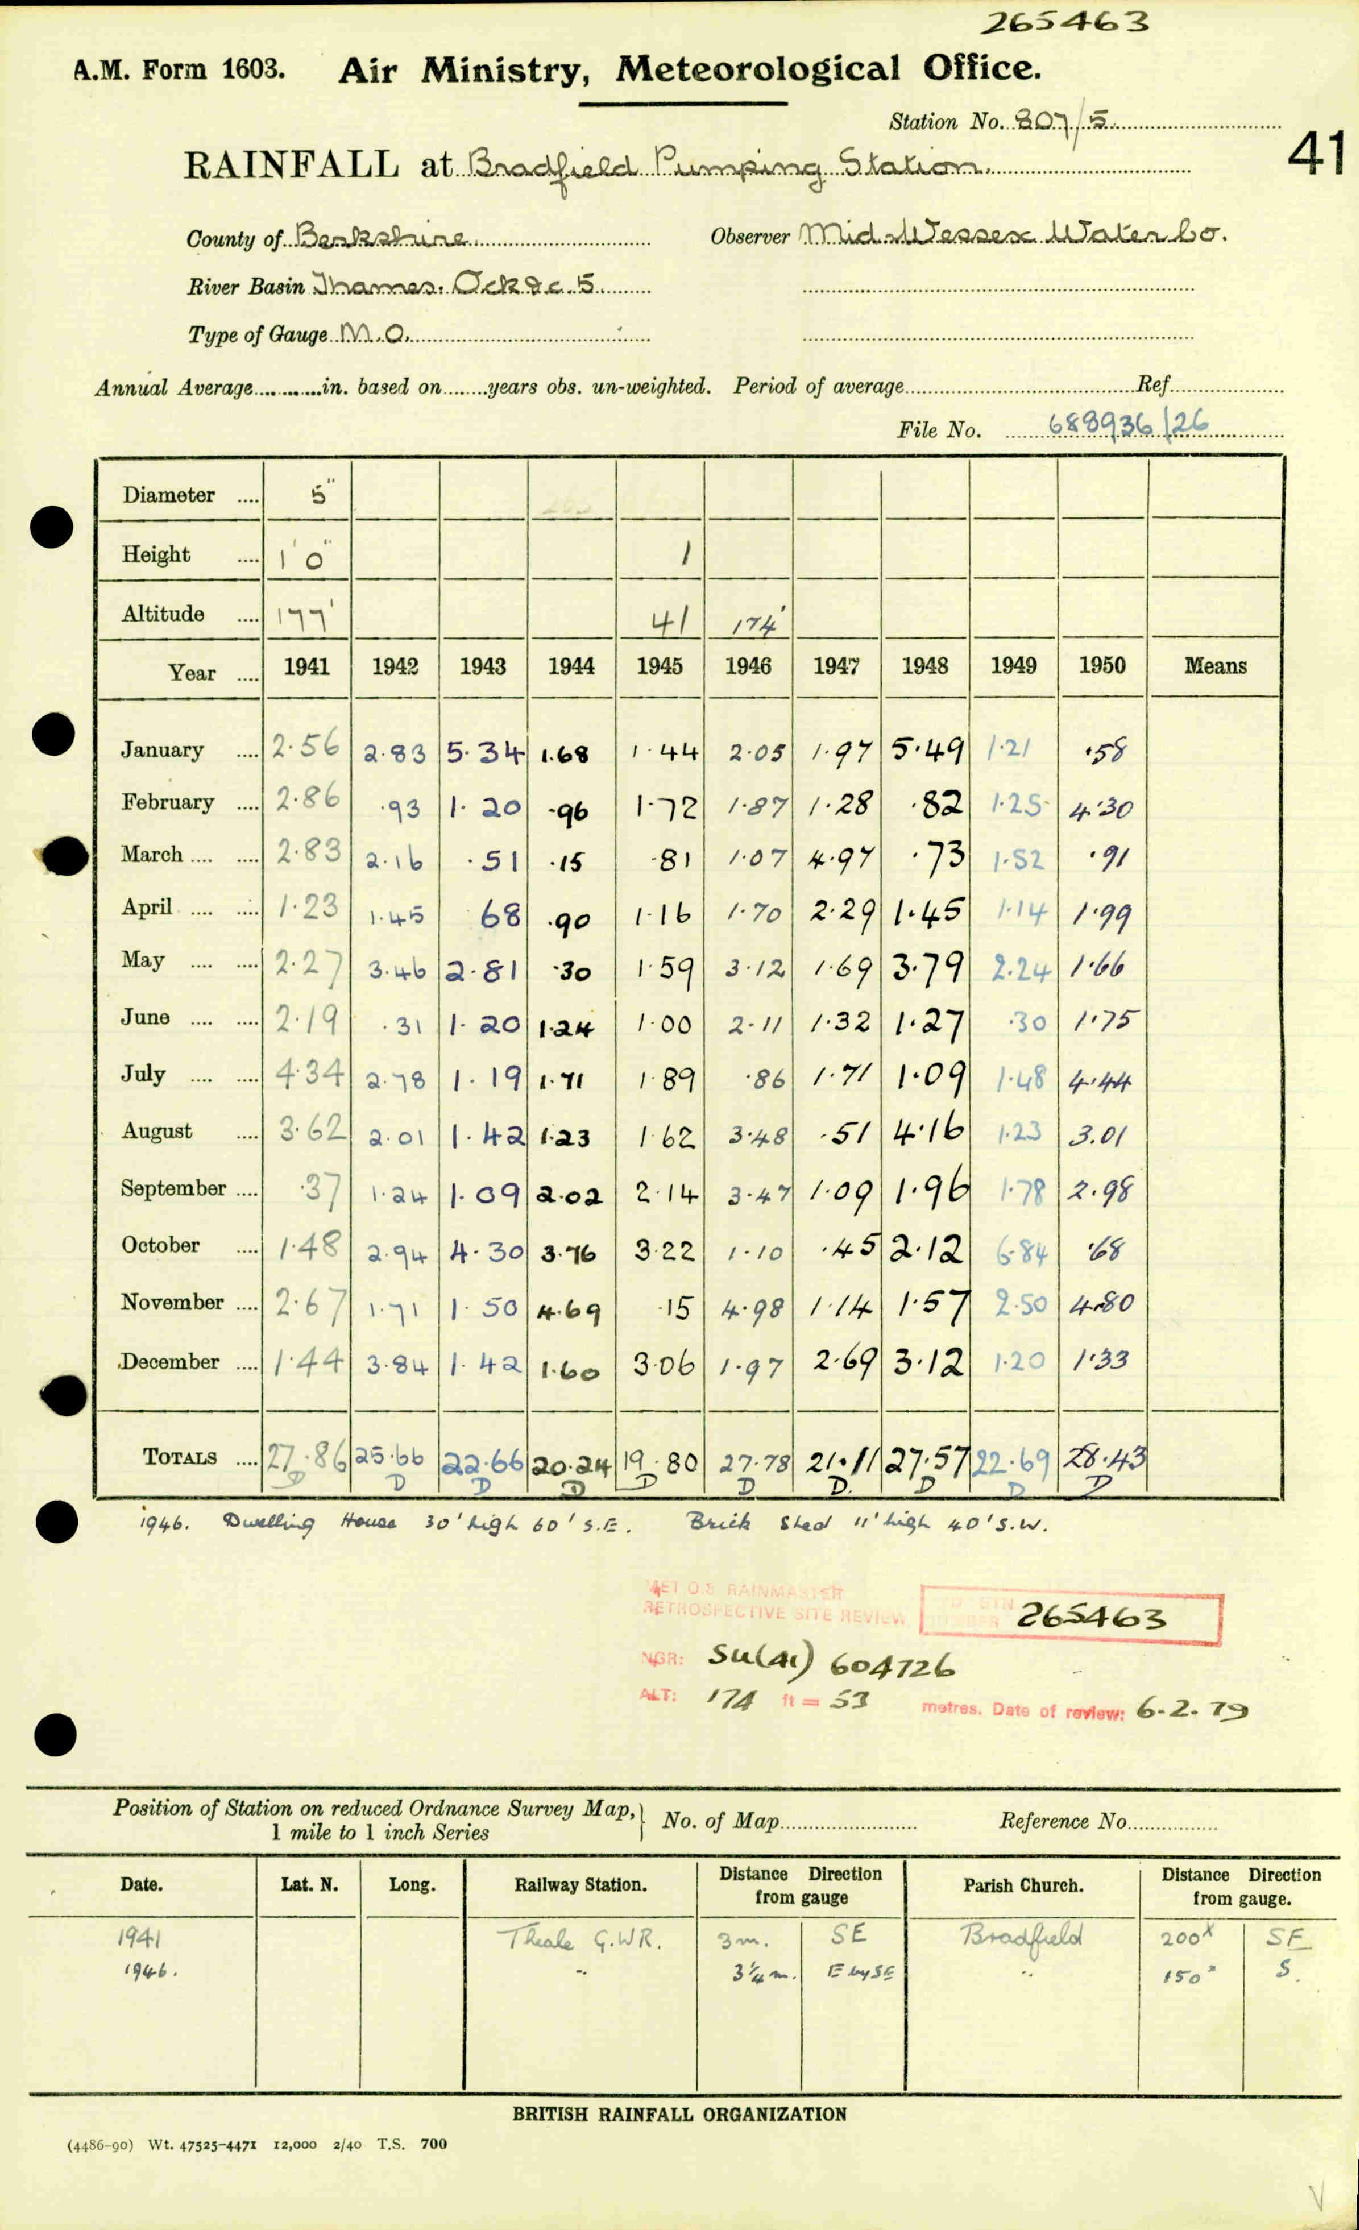 265463
A.M. Form 1603. Air Ministry, Meteorological Office.
Station No. 807/5
41
RAINFALL at Bradfield Pumping Station.
County of Berkshire Observer Mid-Wessex Water Co.
River Basin Thames. Ock &c 5
Type of Gauge M.O.
Annual Average............in. based on........years obs. un-weighted. Period of average..........Ref..........
File No. 688936/26
Diameter .... 5"
Height .... 1' 0" 1
Altitude .... 177' 41 174'
Year .... 1941 1942 1943 1944 1945 1946 1947 1948 1949 1950 Means
January .... 2.56 2.83 5.34 1.68 1.44 2.05 1.97 5.49 1.21 .58
February .... 2.86 .93 1.20 .96 1.72 1.87 1.28 .82 1.25 4.30
March .... .... 2.83 2.16 .51 .15 .81 1.07 4.97 .73 1.52 .91
April .... .... 1.23 1.45 68 .90 1.16 1.70 2.29 1.45 1.14 1.99
May .... .... 2.27 3.46 2.81 .30 1.59 3.12 1.69 3.79 2.24 1.66
June .... .... 2.19 .31 1.20 1.24 1.00 2.11 1.32 1.27 .30 1.75
July .... .... 4.34 2.78 1.19 1.71 1.89 .86 1.71 1.09 1.48 4.44
August .... 3.62 2.01 1.42 1.23 1.62 3.48 .51 4.16 1.23 3.01
September .... .37 1.24 1.09 2.02 2.14 3.47 1.09 1.96 1.78 2.98
October .... 1.48 2.94 4.30 3.76 3.22 1.10 .45 2.12 6.84 .68
November .... 2.67 1.71 1.50 4.69 .15 4.98 1.14 1.57 2.50 4.80
December .... 1.44 3.84 1.42 1.60 3.06 1.97 2.69 3.12 1.20 1.33
TOTALS .... 27.86 25.66 22.66 20.24 19.80 27.78 21.11 27.57 22.69 28.43
D D D D D D D. D D D
1946. Dwelling House 30' high 60' S.E. Brick Shed 11' high 40' S.W.
MET O.8 RAINMASTER
RETROSPECTIVE SITE REVIEW STN NUMBER 265463
NGR: SU(41) 604726
ALT: 174 ft = 53 metres. Date of review: 6.2.79
Position of Station on reduced Ordnance Survey Map, No. of Map.......... Reference No..........
1 mile to 1 inch Series
Date. Lat. N. Long. Railway Station. Distance from gauge Direction Parish Church. Distance from gauge. Direction
1941 Theale G.W.R. 3 m. SE Bradfield 200x SE
1946. " 3¼ m. E by SE " 150x S.
BRITISH RAINFALL ORGANIZATION
(4486-90) Wt. 47525-4471 12,000 2/40 T.S. 700